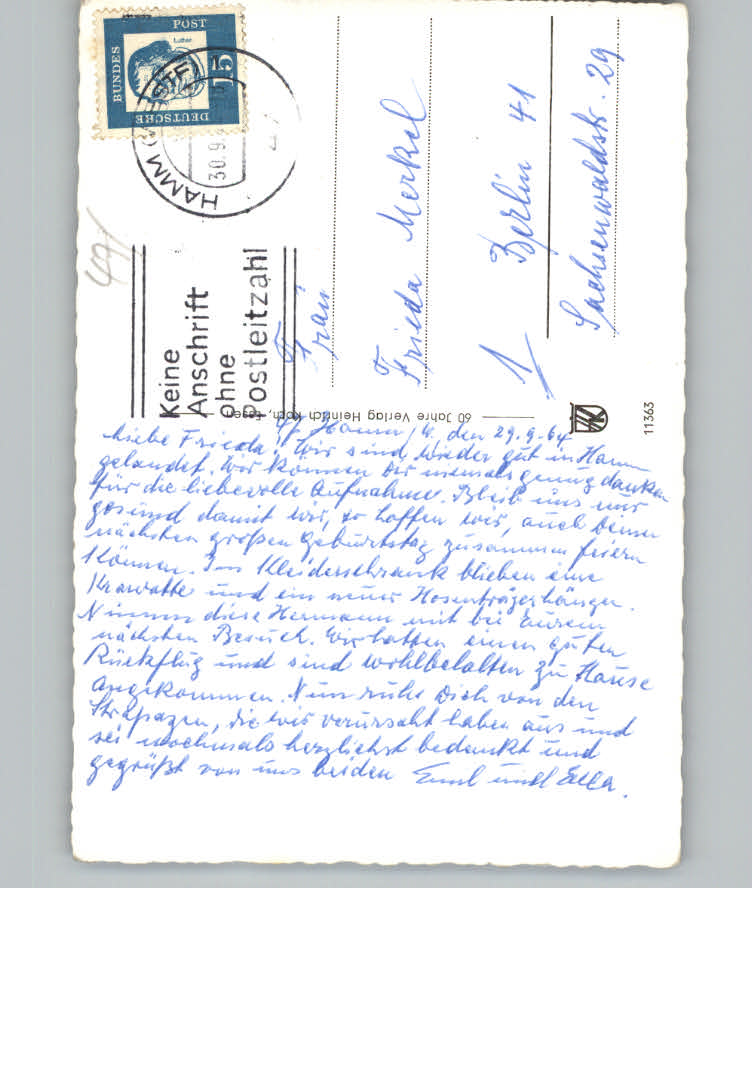 47 Hamm/W. den 29.9.64
Liebe Frieda! Wir sind wieder gut in Hamm
gelandet. Wir können Dir niemals genug danken
für die liebevolle Aufnahme. Bleib uns nur
gesund damit wir, so hoffen wir, auch Deinen
nächsten großen Geburtstag zusammen feiern
können. Im Kleiderschrank blieben eine
Krawatte und ein neuer Hosenträger hängen.
Nimm diese Hermann mit bei Eurem
nächsten Besuch. Wir hatten einen guten
Rückflug und sind wohlbehalten zu Hause
angekommen. Nun ruhe Dich von den
Strapazen, die wir verursacht haben aus und
sei nochmals herzlichst bedankt und
gegrüßt von uns beiden Emil und Ella.
Frau
Frieda Merkel
1 Berlin 41
Sachsenwaldstr. 29
Keine
Anschrift
ohne
Postleitzahl
HAMM (WESTF)
30.9.
DEUTSCHE
BUNDES
POST
Luther
15
60 Jahre Verlag Heinrich Koch, Essen
11363